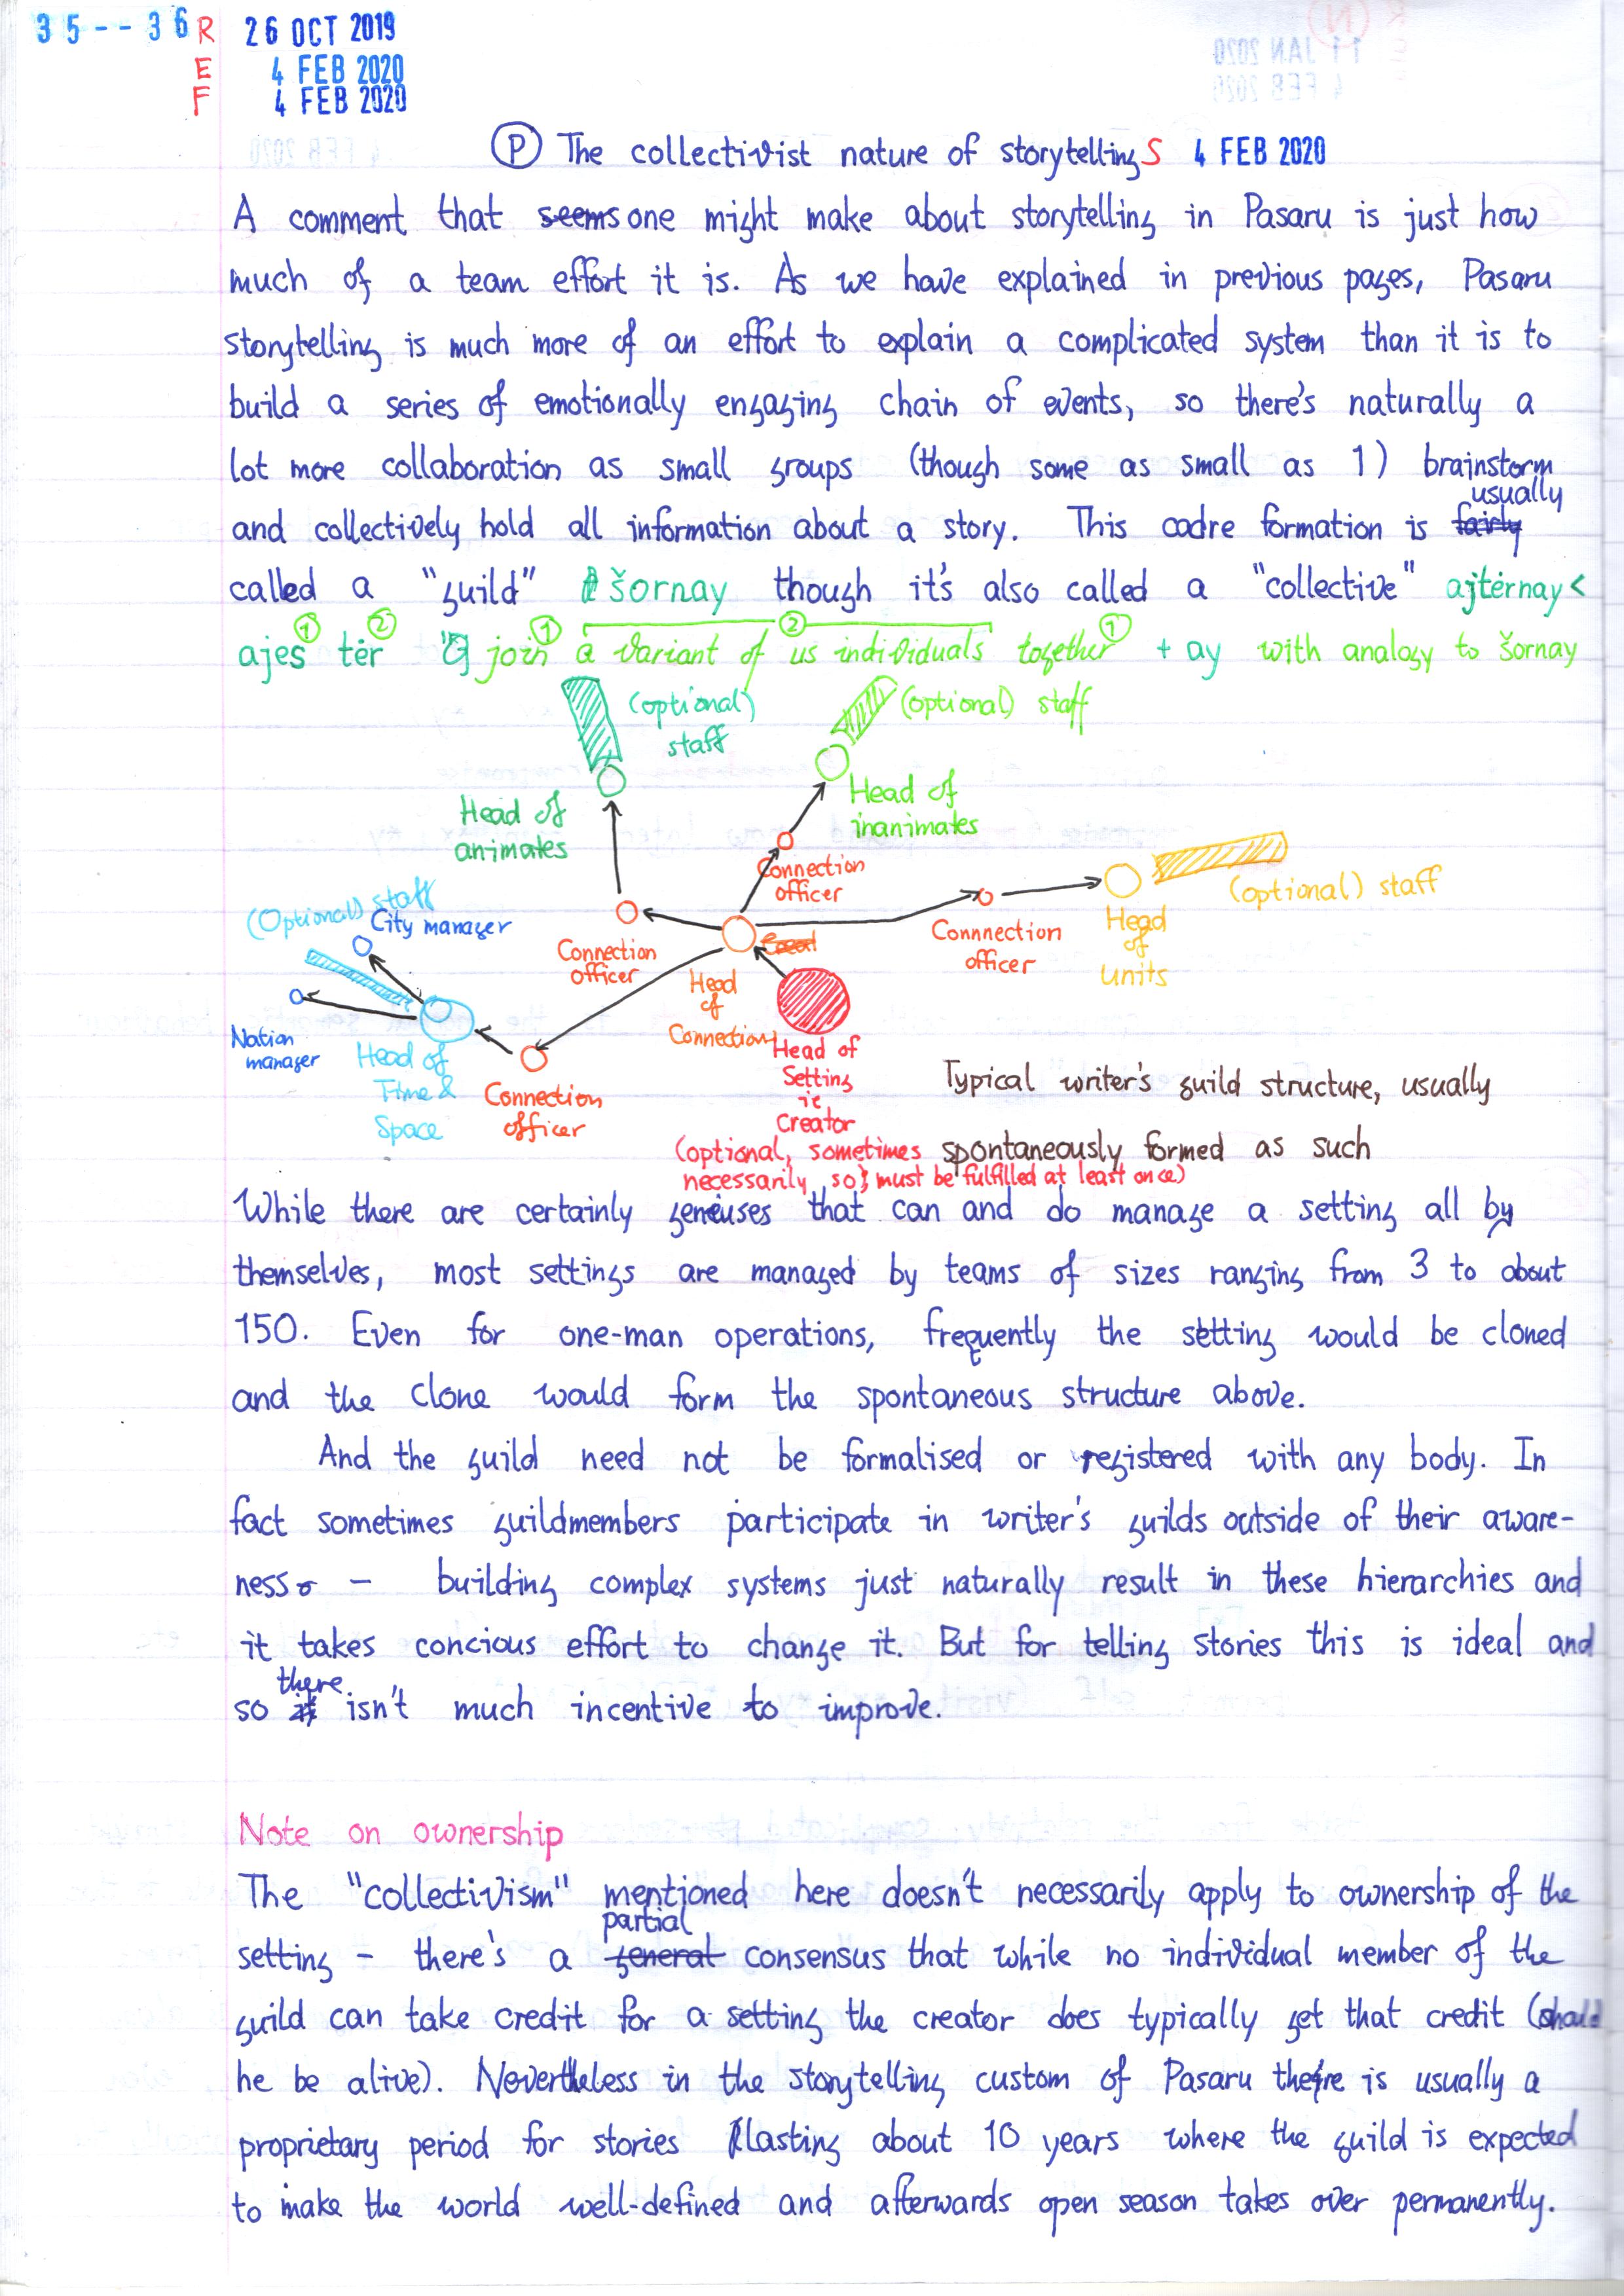 35--36 R 26 OCT 2019
E 4 FEB 2020
F 4 FEB 2020
Ⓟ The collectivist nature of storytelling S 4 FEB 2020
A comment that seems one might make about storytelling in Pasaru is just how
much of a team effort it is. As we have explained in previous pages, Pasaru
storytelling is much more of an effort to explain a complicated system than it is to
build a series of emotionally engaging chain of events, so there's naturally a
lot more collaboration as small groups (though some as small as 1) brainstorm
usually
and collectively hold all information about a story. This cadre formation is fairly
called a "guild" šornay though it's also called a "collective" ajtërnay <
① ② ① ② ①
ajes tër join a variant of us individuals together + ay with analogy to šornay
(optional) staff
(optional) staff
Head of animates
Head of inanimates
Connection officer
(optional) staff
(Optional) staff
City manager
Connection officer
Connnection officer
Head of units
Head of Connection
Nation manager
Head of Time & Space
Connection officer
Head of Setting ie Creator
(optional, sometimes
necessarily so; must be fulfilled at least once)
Typical writer's guild structure, usually
spontaneously formed as such
While there are certainly geneiuses that can and do manage a setting all by
themselves, most settings are managed by teams of sizes ranging from 3 to about
150. Even for one-man operations, frequently the setting would be cloned
and the clone would form the spontaneous structure above.
And the guild need not be formalised or registered with any body. In
fact sometimes guildmembers participate in writer's guilds outside of their aware-
ness - building complex systems just naturally result in these hierarchies and
it takes concious effort to change it. But for telling stories this is ideal and
there
so it isn't much incentive to improve.
Note on ownership
The "collectivism" mentioned here doesn't necessarily apply to ownership of the
partial
setting - there's a general consensus that while no individual member of the
guild can take credit for a setting the creator does typically get that credit (should
he be alive). Nevertheless in the storytelling custom of Pasaru there is usually a
proprietary period for stories lasting about 10 years where the guild is expected
to make the world well-defined and afterwards open season takes over permanently.